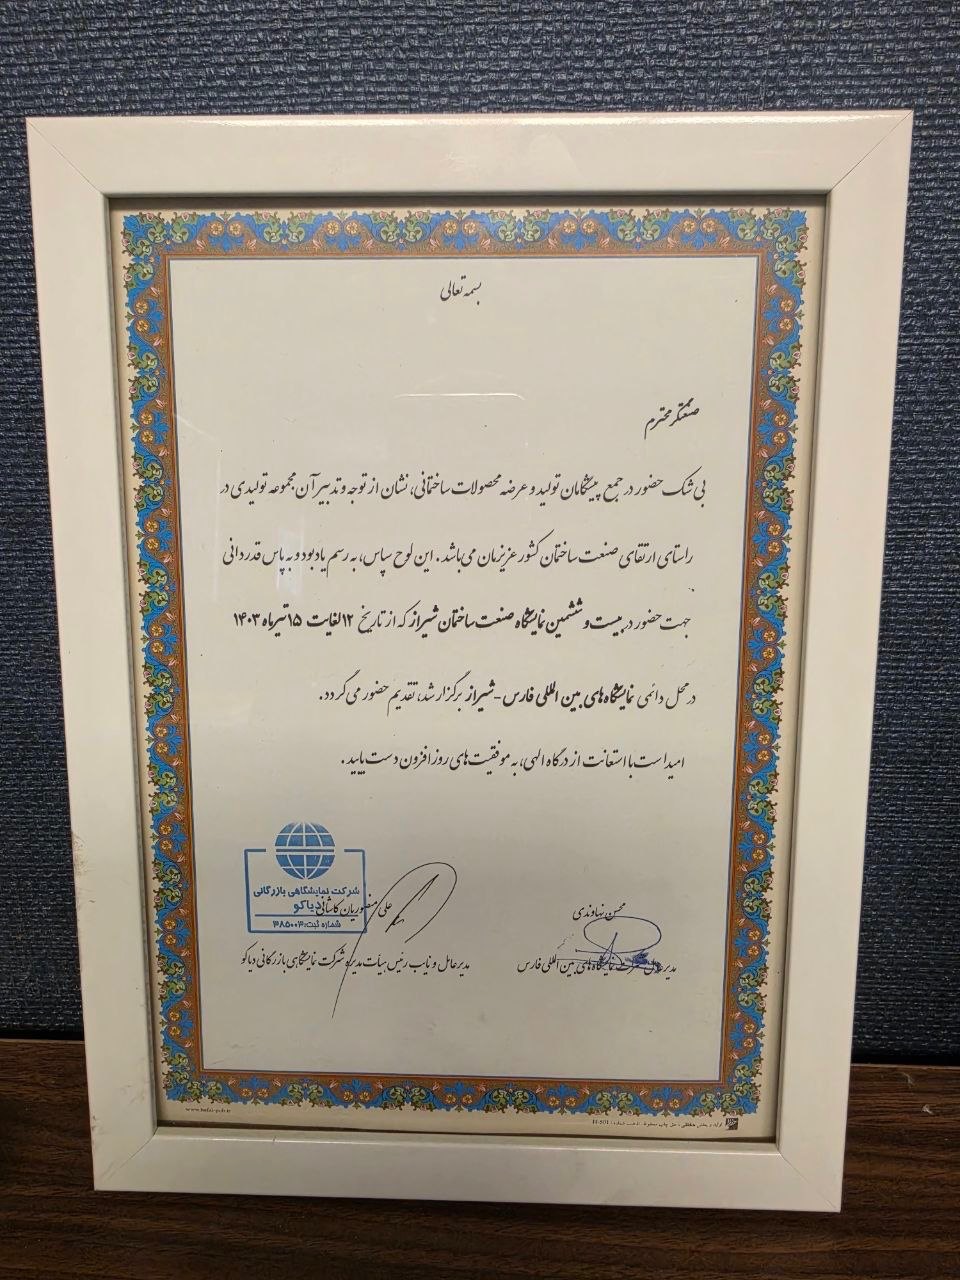 بسمه تعالی
صنعتگر محترم
بی شک حضور در جمع پیشگامان تولید و عرضه محصولات ساختمانی، نشان از توجه و تدبیر آن مجموعه تولیدی در
راستای ارتقای صنعت ساختمان کشور عزیزمان می باشد. این لوح سپاس، به رسم یادبود و به پاس قدردانی
جهت حضور در بیست و ششمین نمایشگاه صنعت ساختمان شیراز که از تاریخ ۱۲ لغایت ۱۵ تیرماه ۱۴۰۳
در محل دائمی نمایشگاه های بین المللی فارس - شیراز برگزار شد، تقدیم حضور می گردد.
امید است با استعانت از درگاه الهی، به موفقیت های روز افزون دست یابید.
محسن نهاوندی
مدیرعامل شرکت نمایشگاه های بین المللی فارس
علی منصوریان کاشانی
مدیرعامل و نایب رئیس هیات مدیره شرکت نمایشگاهی بازرگانی دیاکو
شرکت نمایشگاهی بازرگانی
دیاکو
شماره ثبت: ۳۸۵۰۰۳